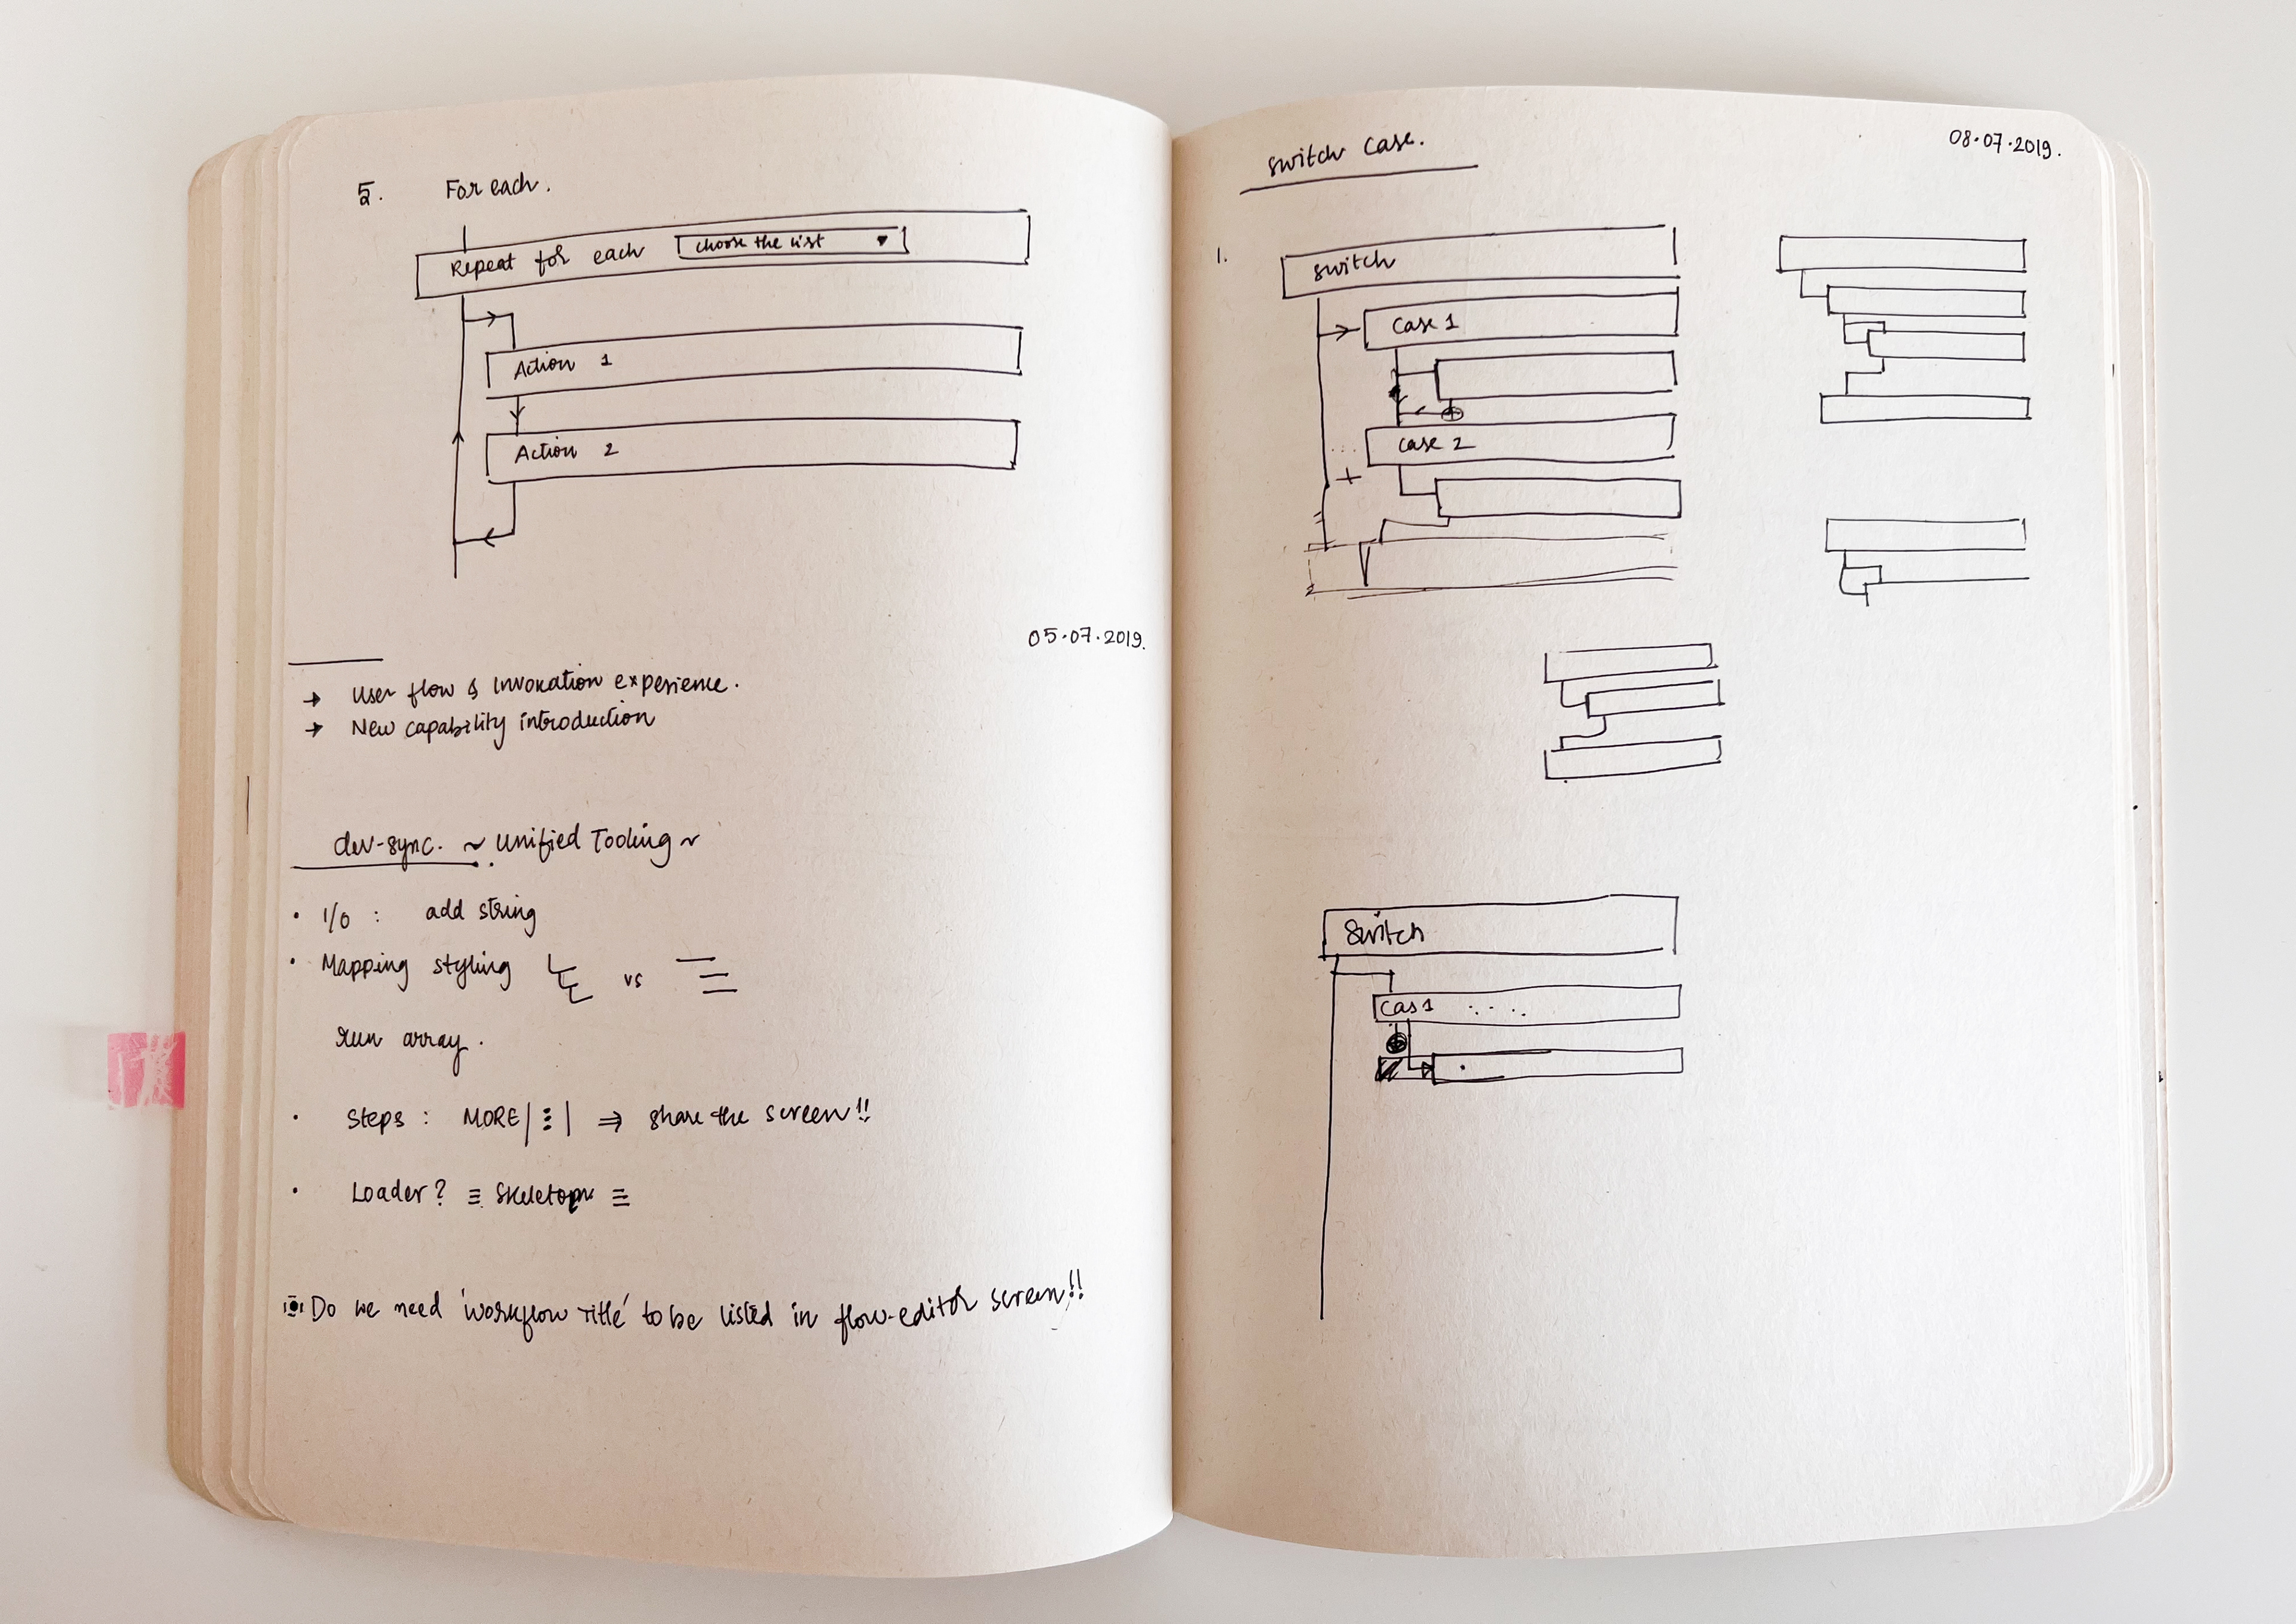 5. For each.
Repeat for each choose the list
Action 1
Action 2
05.07.2019.
→ User flow & Invokation experience.
→ New capability introduction
dev-sync. ~ Unified Tooling ~
• I/O : add string
• Mapping styling vs
run array.
• Steps : MORE | ⋮ | ⇒ share the screen!!
• Loader? ≡ Skeleton ≡
Do we need 'workflow Title' to be listed in flow-editor screen!!
Switch Case.
08.07.2019.
1.
Switch
Case 1
Case 2
Switch
Cas1